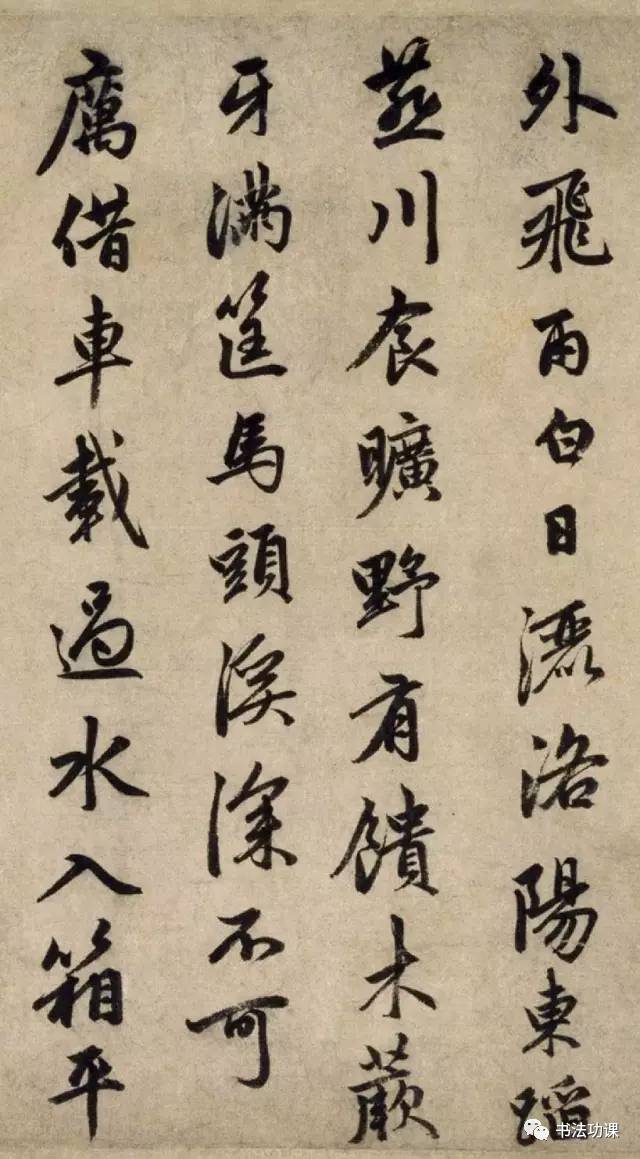 外飛雨白日灑洛陽東蹈
燕川食曠野有饋木蕨
牙滿筐馬頭溪深不可
厲借車載過水入箱平
书法功课